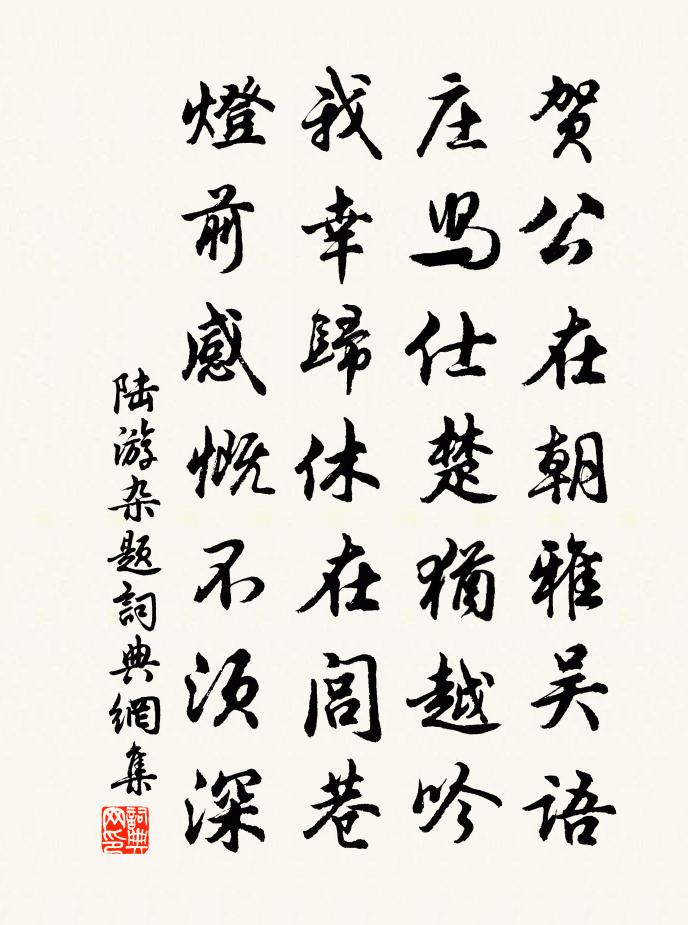 贺公在朝雅吴语
庄舄仕楚犹越吟
我幸歸休在闾巷
燈前感慨不须深
陆游杂题詞典網集
詞典网印